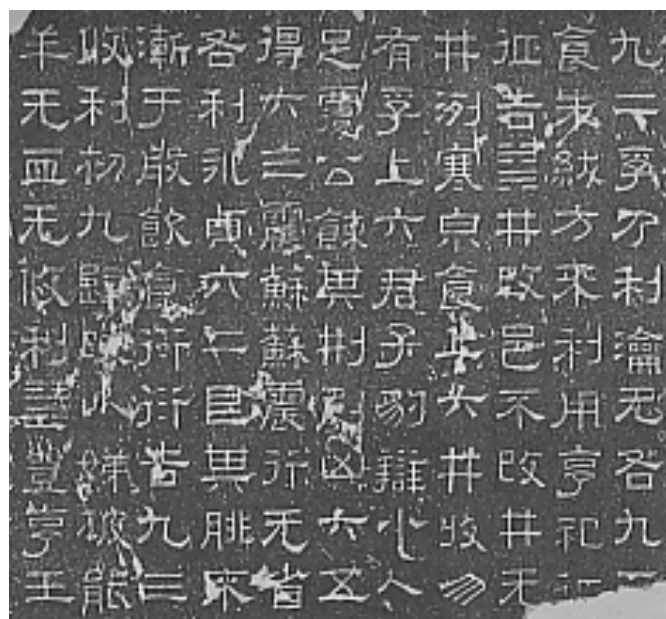 九二孚乃利瀹无咎九
食朱紱方來利用亨祀
征吉䷯井改邑不改井无
井洌寒泉食上六井收勿
有孚上六君子豹辯小人
足覆公餗其刑剭凶六五
得六三震蘇蘇震行无眚
咎利永貞六二艮其腓
漸于般飲食衎衎吉九三
收利初九歸妹以娣跛能
羊无血无攸利䷶豐亨王